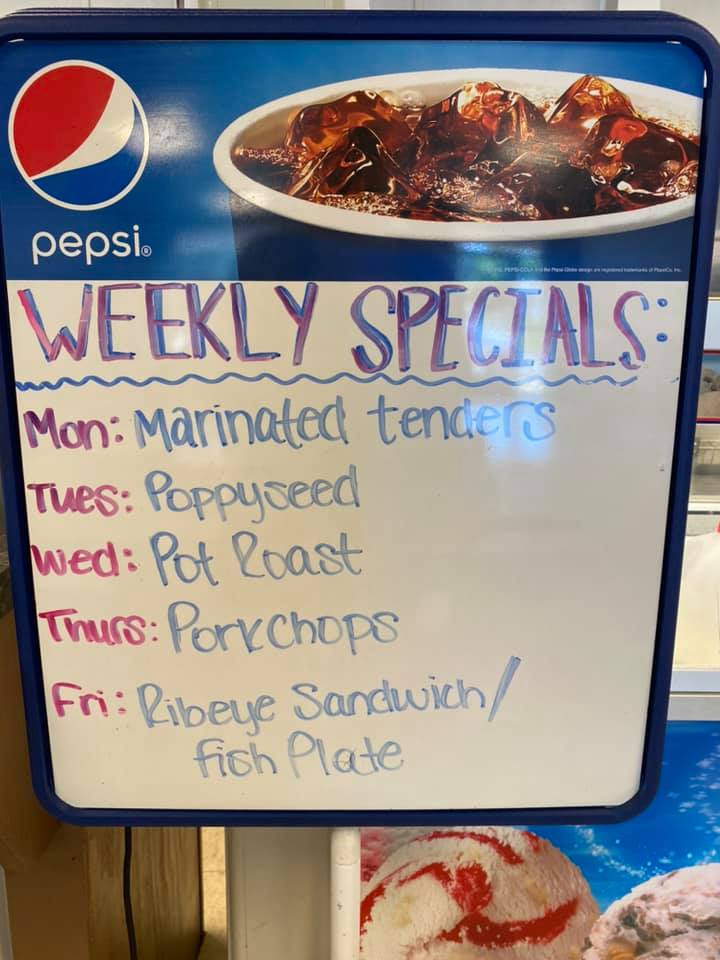 pepsi®
WEEKLY SPECIALS:
Mon: Marinated tenders
Tues: Poppyseed
Wed: Pot Roast
Thurs: Porkchops
Fri: Ribeye Sandwich/
fish Plate